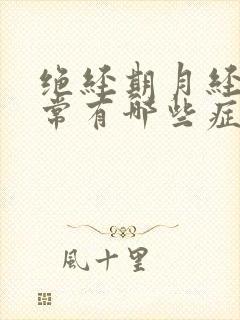 绝经期月经
常有哪些症
風十里